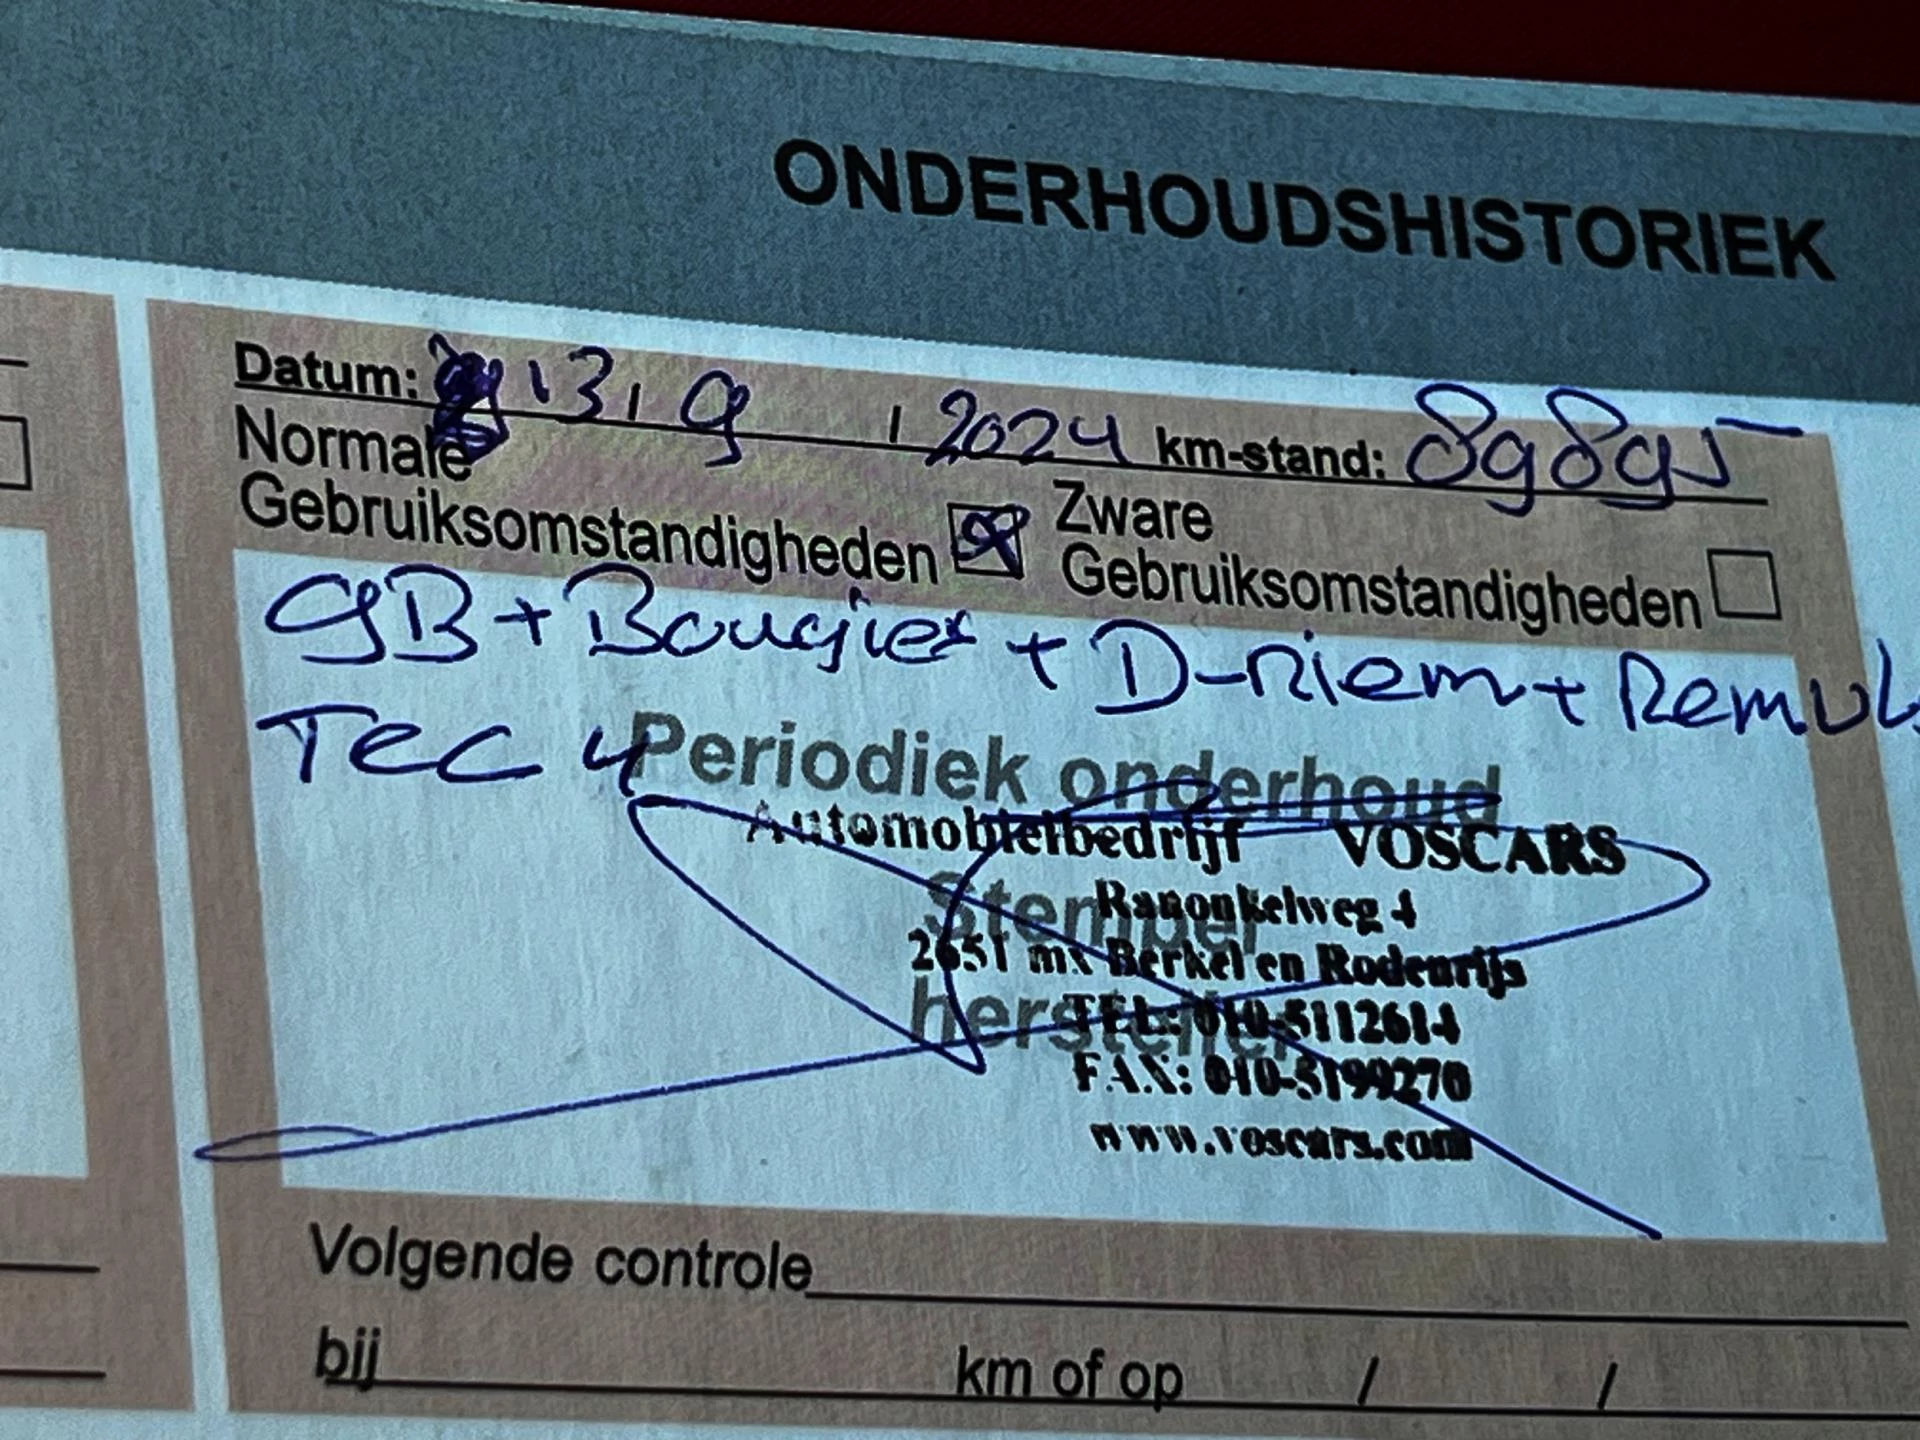 ONDERHOUDSHISTORIEK
Datum: 13 / 9 / 2024 km-stand: 89895
Normale Gebruiksomstandigheden Zware Gebruiksomstandigheden
GB + Bougies + D-Riem + Remvl
TEC 4
Periodiek onderhoud
Automobielbedrijf VOSCARS
Stempel
Ranonkelweg 4
2651 mx Berkel en Rodenrijs
hersteller
TEL: 010-5112614
FAX: 010-5199270
www.voscars.com
Volgende controle
bij km of op / /